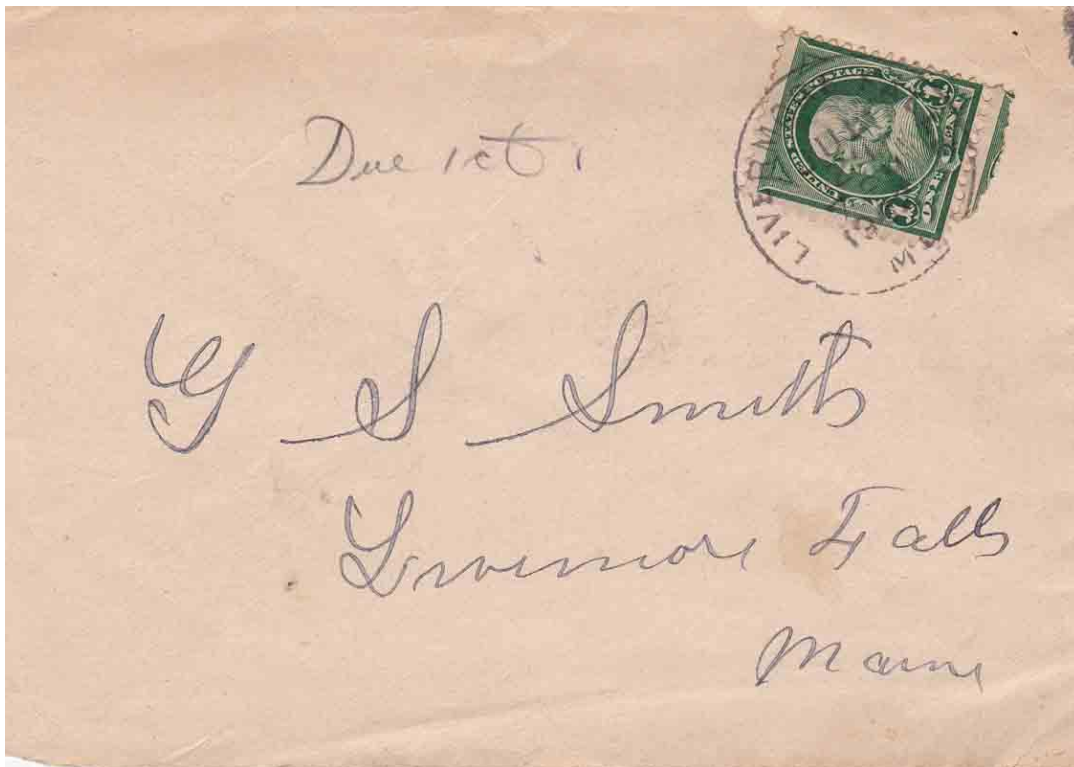 Due 1ct
UNITED STATES POSTAGE
1 1
ONE CENT
LIVERM
G S Smith
Livermore Falls
Maine